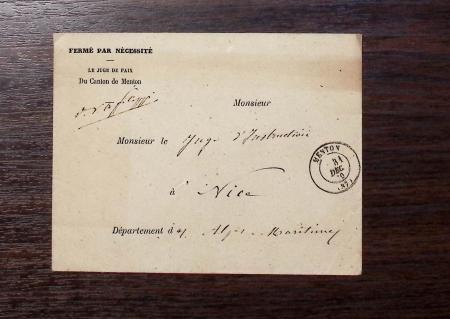 FERMÉ PAR NÉCESSITÉ
LE JUGE DE PAIX
Du Canton de Menton
Monsieur
Monsieur le Juge d'Instruction
à Nice
Département des Alpes-Maritimes
MENTON
31
DEC.
(87)